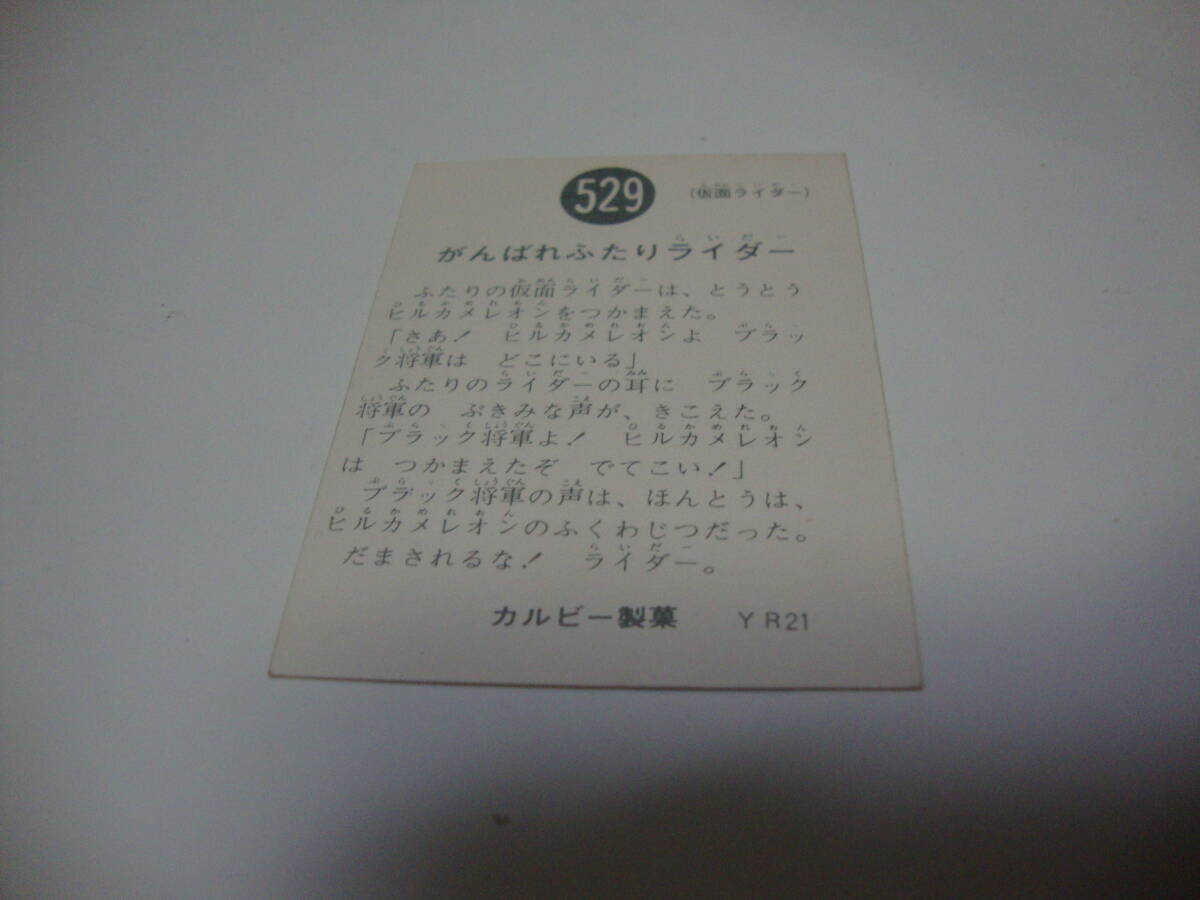 529
(仮面ライダー)
がんばれふたりライダー
ふたりの仮面ライダーは、とうとう
ヒルカメレオンをつかまえた。
「さあ! ヒルカメレオンよ ブラッ
ク将軍は どこにいる」
ふたりのライダーの耳に ブラック
将軍の ぶきみな声が、きこえた。
「ブラック将軍よ! ヒルカメレオン
は つかまえたぞ でてこい!」
ブラック将軍の声は、ほんとうは、
ヒルカメレオンのふくわじつだった。
だまされるな! ライダー。
カルビー製菓 YR21